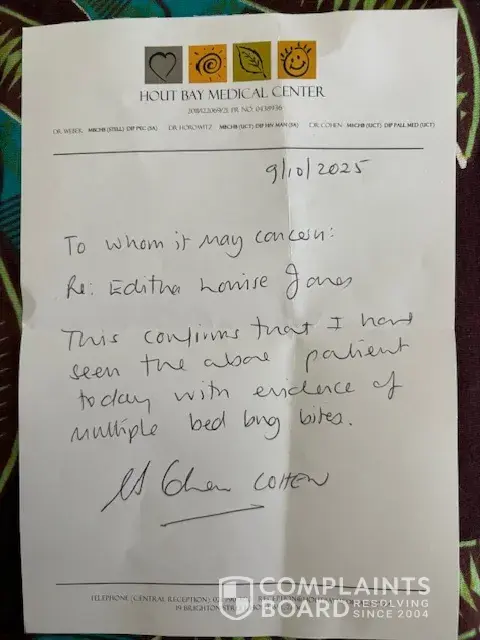 HOUT BAY MEDICAL CENTER
DR. WEBER MBCHB (STELL) DIP PEC (SA) DR. HOROWITZ MBCHB (UCT) DIP HIV MAN (SA) DR. COHEN MBCHB (UCT) DIP PALL MED (UCT)
9/10/2025
To whom it may concern:
Re: Editha Louise Jones
This confirms that I have
seen the above patient
today with evidence of
multiple bed bug bites.
COHEN
TELEPHONE (CENTRAL RECEPTION)
19 BRIGHTON
COMPLAINTS
BOARD RESOLVING SINCE 2004